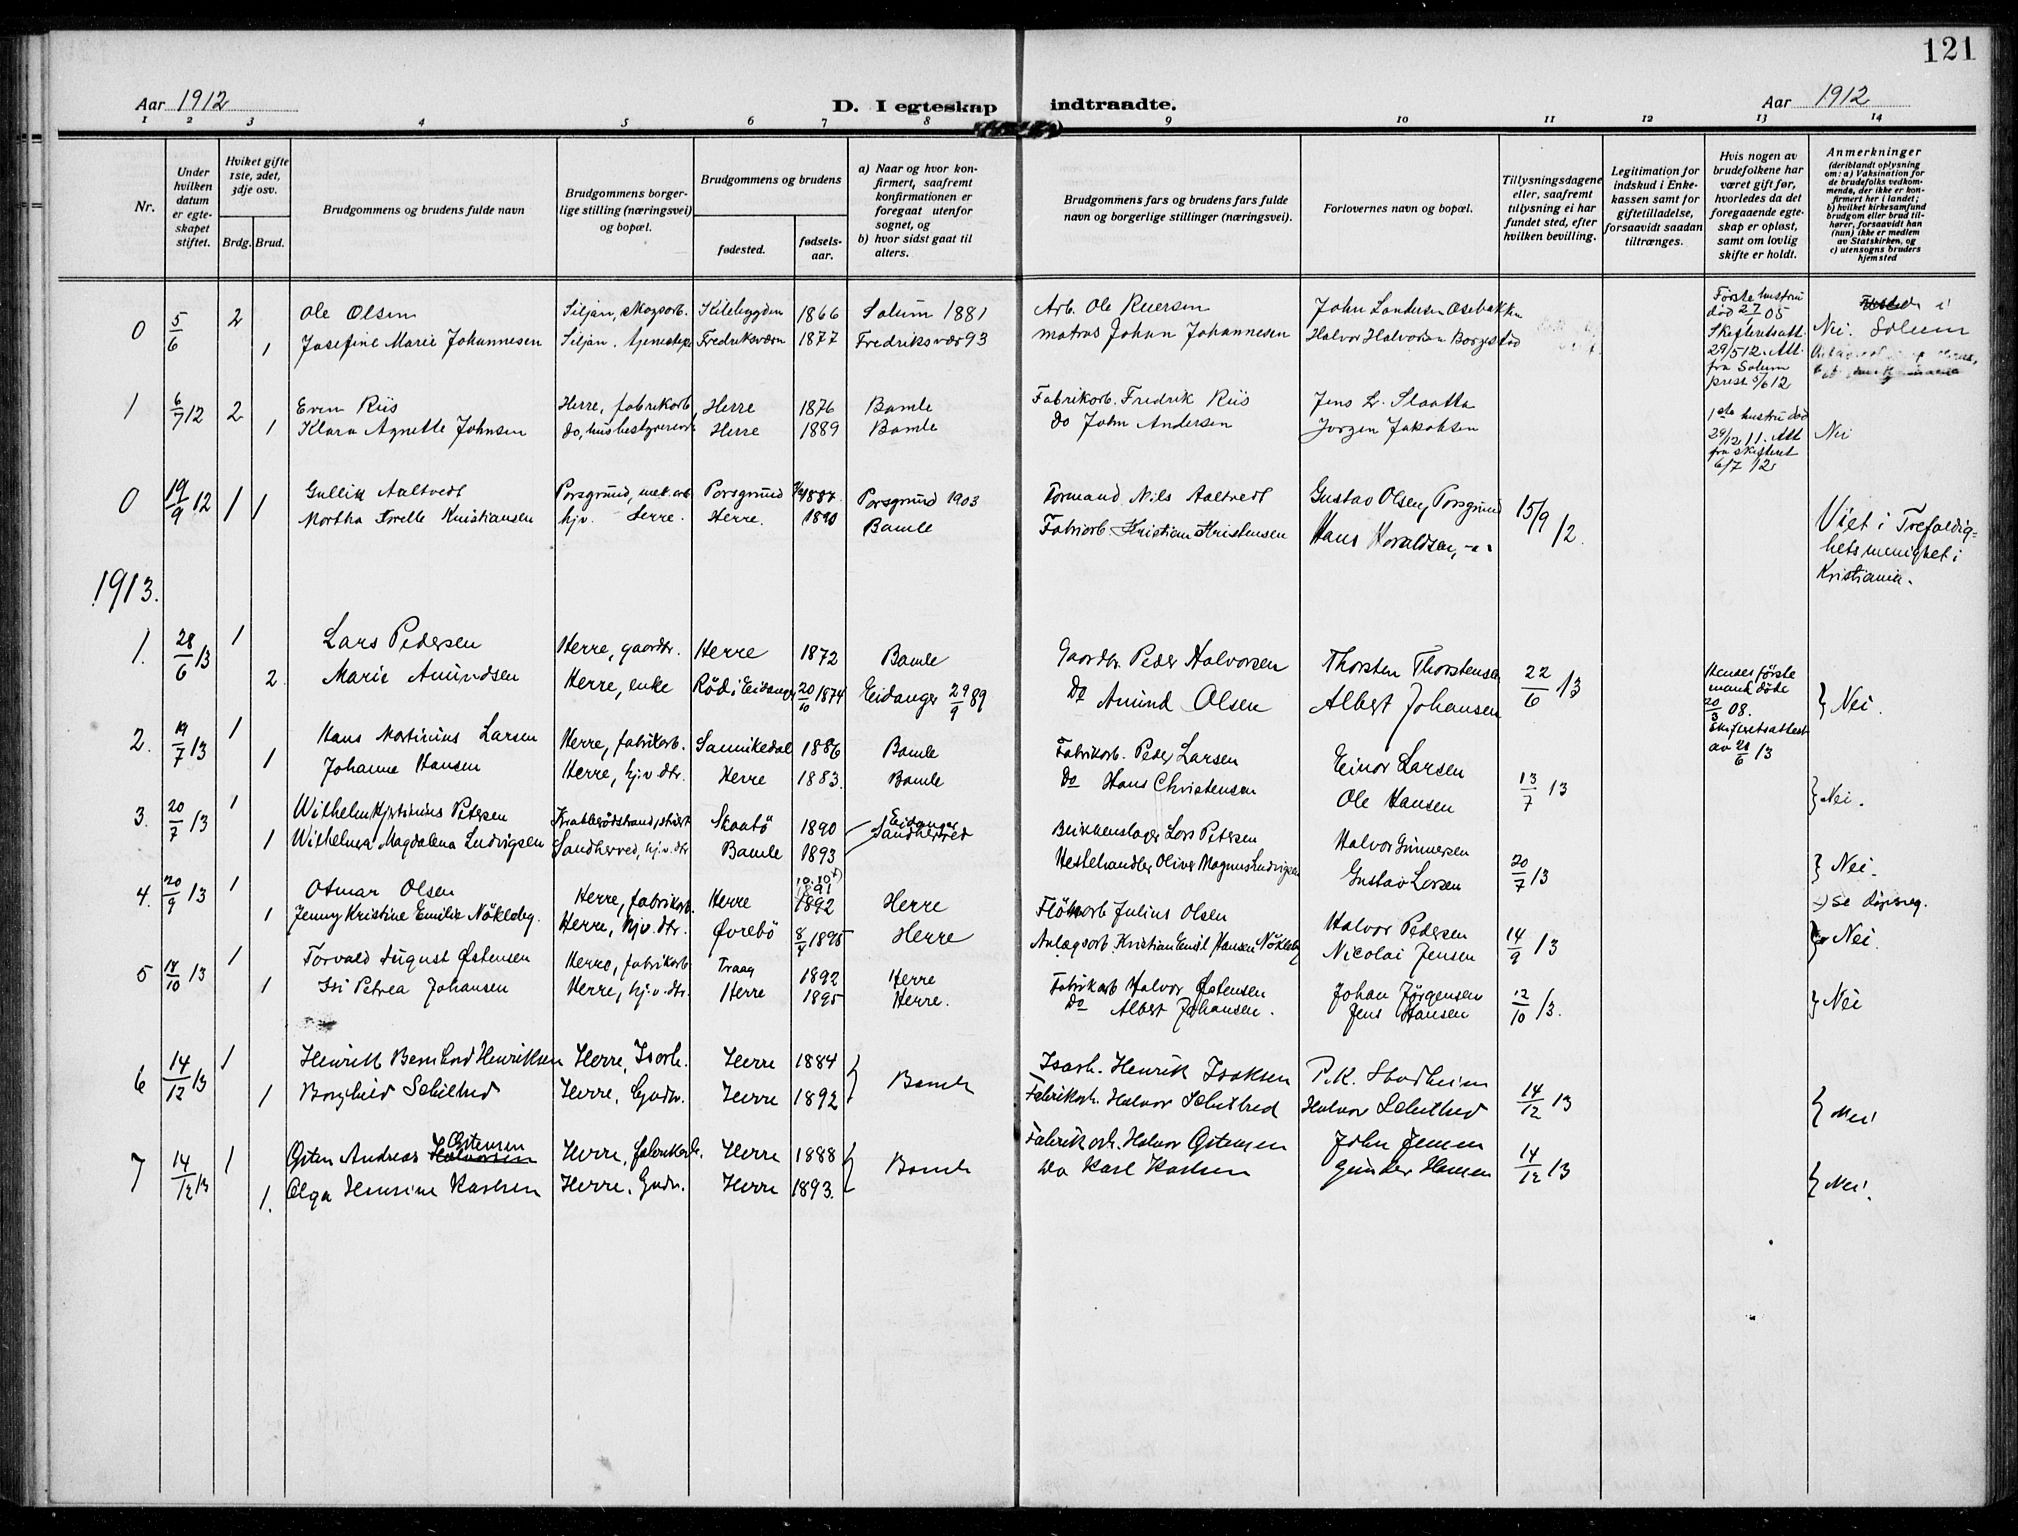 121
Aar 1912
D. I egteskap indtraadte.
Aar 1912
1 2 3 4 5 6 7 8 9 10 11 12 13 14
Nr.
Under hvilken datum er egte-skapet stiftet.
Hvilket gifte 1ste, 2det, 3dje osv.
Brdg. Brud.
Brudgommens og brudens fulde navn
Brudgommens borger-lige stilling (næringsvei) og bopæl.
Brudgommens og brudens
fødested.
fødsels-aar.
a) Naar og hvor kon-firmert, saafremt konfirmationen er foregaat utenfor sognet, og
b) hvor sidst gaat til alters.
Brudgommens fars og brudens fars fulde navn og borgerlige stillinger (næringsvei).
Forlovernes navn og bopæl.
Tillysningsdagene eller, saafremt tillysning ei har fundet sted, efter hvilken bevilling.
Legitimation for indskud i Enke-kassen samt for giftetilladelse, forsaavidt saadan tiltrænges.
Hvis nogen av brudefolkene har været gift før, hvorledes da det foregaaende egte-skap er opløst, samt om lovlig skifte er holdt.
Anmerkninger
(deriblandt oplysning om: a) Vaksination for de brudefolks vedkom-mende, der ikke er kon-firmert her i landet; b) hvilket kirkesamfund brudgom eller brud til-hører, forsaavidt han (hun) ikke er medlem av Statskirken, og c) utensogns bruders hjemsted
0 5/6 2 Ole Olsen Siljan, skogsarb. Kilebygden 1866 Solum 1881 Arb. Ole Ruersen John Landersen Første hustru død 2/7 05 i Solum
1 Josefine Marie Johannesen Siljan, Fredriksværn 1877 Fredriksvær 93 matros Johan Johannesen Halvor Halvorsen Borgestad Skifteretsatt. 29/5 12. Att. fra Solum prest 5/6 12 Nei.
1 6/7 12 2 Even Riis Herre, fabrikarb. Herre 1876 Bamle Fabrikarb. Fredrik Riis Jens L. Slaatta 1ste hustru død
1 Klara Agnette Johnsen do, husbestyrerinde Herre 1889 Bamle Do John Andersen Jørgen Jakobsen 29/12 11. Att. fra skifteret 6/7 12 Nei
0 19/9 12 1 Gullik Aaltvedt Porsgrund, mek. arb. Porsgrund 1884 Porsgrund 1903 Formand Nils Aaltvedt Gustav Olsen, Porsgrund 15/9 12.
1 Martha Torelle Kristiansen hjv. Herre. Herre. 1890 Bamle Fabriarb. Kristian Kristensen Hans Haraldsen, -"- Viet i Trefoldig-hets menighet i Kristiania.
1913.
1. 28/6 13 1 Lars Pedersen Herre, gaardbr. Herre 1872 Bamle Gaardbr. Peder Halvorsen Thorsten Thorstensen 22/6 13 Hendes første mand døde
2. Marie Amundsen Herre, enke Rød i Eidanger 20/10 1874 Eidanger 29/9 89 Do Amund Olsen Albert Johansen 20/3 08. Skifteretsattest av 21/6 13 } Nei.
2. 19/7 13 1 Hans Martinius Larsen Herre, fabrikarb. Sannikedal 1886 Bamle Fabrikarb. Peder Larsen Einar Larsen 13/7 13
1 Johanne Hansen Herre, hj.v. dtr. Herre 1883. Bamle Do Hans Christensen Ole Hansen } Nei.
3. 20/7 13 1 Wilhelm Petersen Skaatø 1890 Eidanger Blikkenslager Lars Petersen Halvor Gunnersen 20/7 13
1 Wilhelmea Magdalena Ludvigsen Sandherred, hj.v. dtr Bamle 1893 Sandherred Hestehandler Oliver Magnus Ludvigsen Gustav Larsen } Nei.
4. 20/9 13 1 Otmar Olsen Herre, fabrikarb. Herre 10.10 x) 1891 1892 Herre Julius Olsen Halvor Pedersen 14/9 13 x) Se dåpsreg.
1 Jenny Kristine Emilie Nökleby. Herre, hj.v. dtr. Øvrebö 8/4 1895 Herre Anlægsarb. Kristian Emil Hansen Nökleby Nicolai Jensen } Nei.
5 18/10 13 1 Torvald August Østensen Herre, fabrikarb. Traag 1892 Herre Fabrikarb Halvor Østensen Johan Jørgensen 12/10 13.
1 Isi Petrea Johansen Herre, hj.v. dtr. Herre 1895 Herre. Do Albert Johansen. Jens Hansen } Nei
6 14/12 13 1 Henrik Bernhard Henriksen Herre, Isarb. Herre 1884 } Bamle Isarb. Henrik Isaksen P.K. Stadheim 14/12 13
1 Borghild Schiltred Herre. Herre 1892 Fabrikarb. Halvor Schiltred Halvor Schiltred } Nei!
7 14/12 13 1 Østen Andreas Halvorsen Østensen Herre, fabrikarb. Herre 1888 } Bamle Fabrikarb. Halvor Østensen John Jensen 14/12 13
1. Olga Hensine Karlsen Herre. Herre 1893. Do Karl Karlsen Gunder Hansen } Nei!